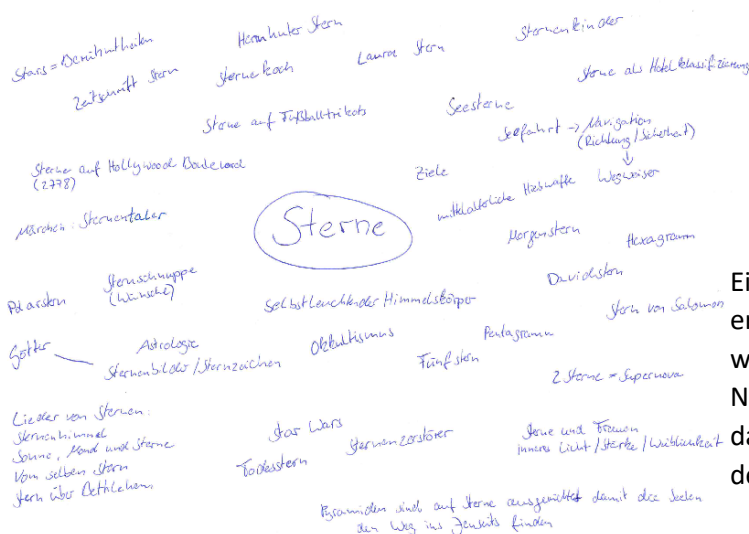 Stars = Berühmtheiten
Herrnhuter Stern
Sternenkinder
Zeitschrift Stern
Sternekoch
Laura Stern
Sterne als Hotelklassifizierung
Sterne auf Fußballtrikots
Seesterne
Seefahrt → Navigation
(Richtung/Sicherheit)
↓
Wegweiser
Sterne auf Hollywood Boulevard
(2778)
Ziele
mittelalterliche Hiebwaffe
Märchen: Sterntaler
Sterne
Morgenstern
Hexagramm
Polarstern
Sternschnuppe
(Wünsche)
Selbstleuchtender Himmelskörper
Davidstern
Stern von Salomon
Götter
Astrologie
Sternenbilder/Sternzeichen
Okkultismus
Pentagramm
Fünfstern
2 Sterne = Supernova
Lieder von Sternen:
Sternenhimmel
Sonne, Mond und Sterne
Vom selben Stern
Stern über Bethlehem
Star Wars
Todesstern
Sternenzerstörer
Sterne und Frauen
inneres Licht/Stärke/Weiblichkeit
Pyramiden sind auf Sterne ausgerichtet damit die Seelen
den Weg ins Jenseits finden
Ei
er
w
N
da
de